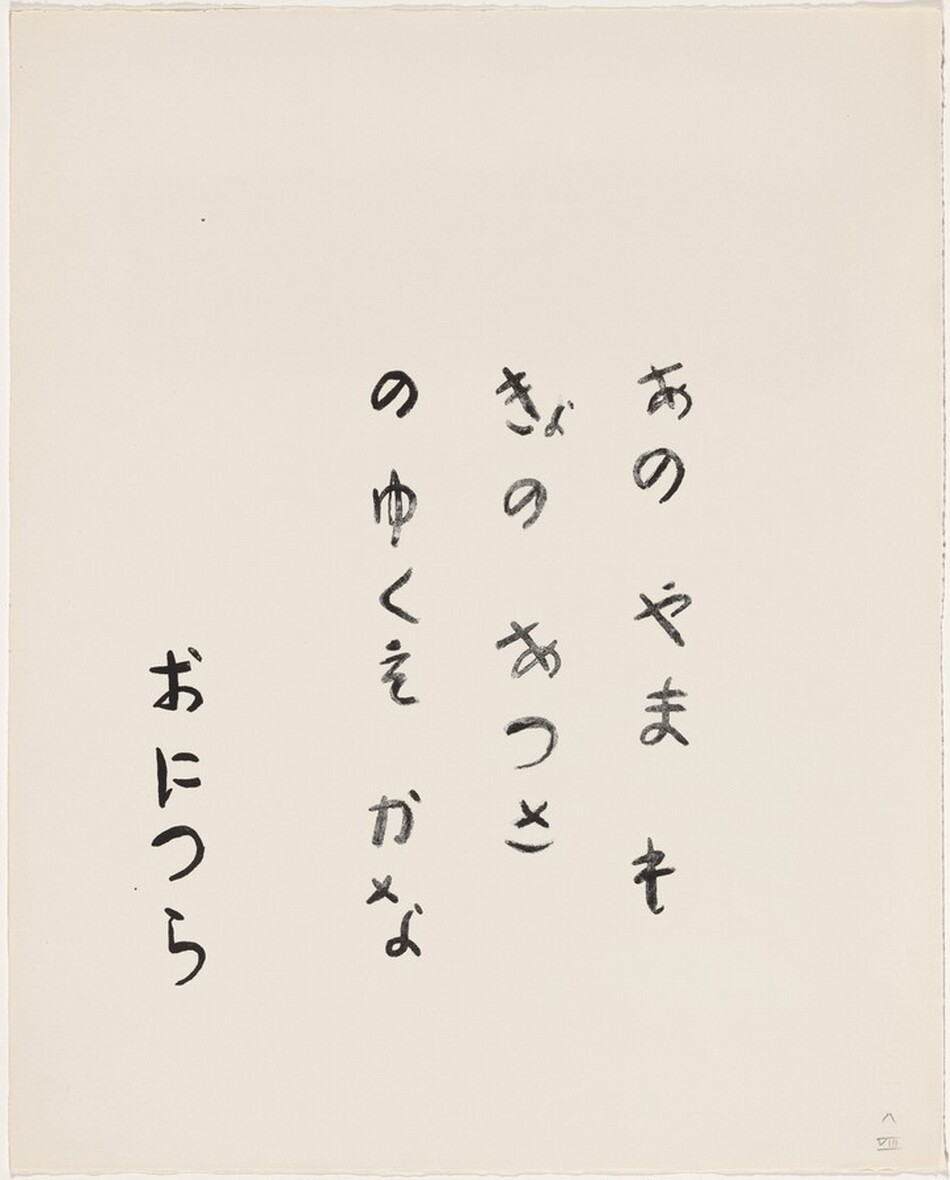 あの やま も
きょの あつさ
の ゆくえ かな
おにつら
八
VIII